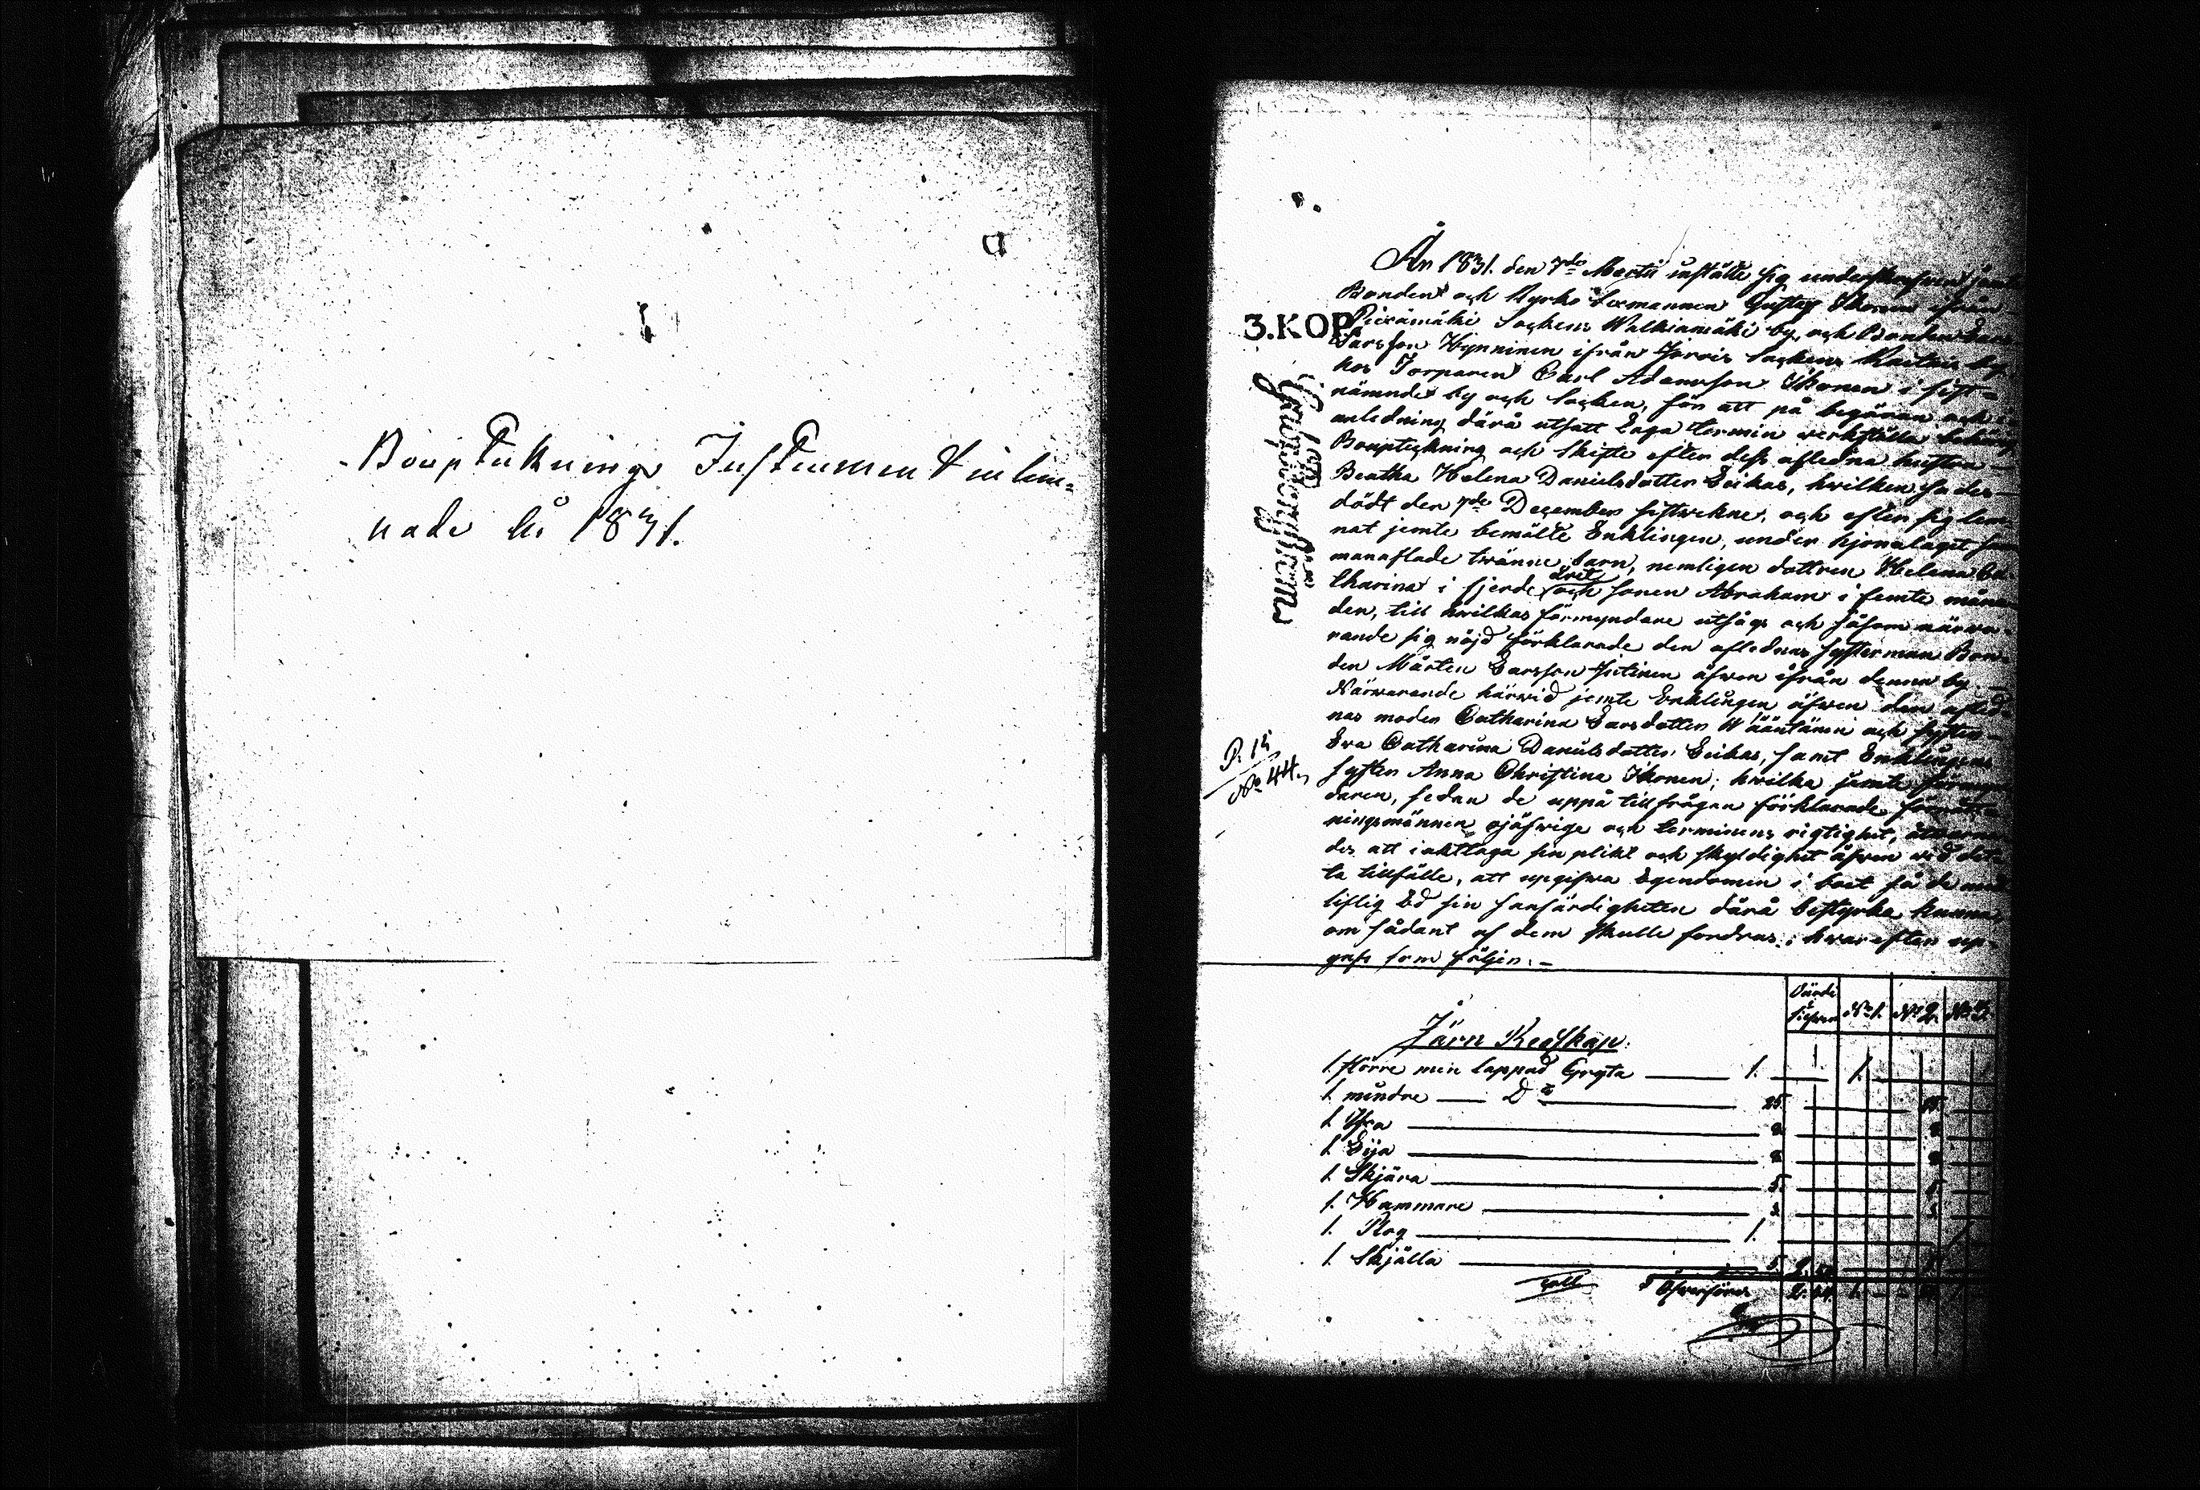 Bouptekning Instrument inlem=
nade År 1831.
År 1831. den 7de Martii instälte sig underskrefven jämte
Bonden och Kyrko Sexmannen Gustaf Ikonen ifrån
3. KOP.
Piexämäki Sockens Walkiamäki by, och Bonden Lars
Larsson Hynninen ifrån Jorois Sockens by
hos Torparen Carl Adamsson Ikonen i sist=
nämnde by och Socken, för att på begäran och i
anledning därå utsatt Laga termin verkställa
Bouptekning och Skifte efter dess afledna hustru
Beatha Helena Danielsdotter Leikas, hvilken
dödt den 7de December sistvekne, och efter sig lem=
nat jemte bemälte Enklingen, under hjonelaget sam=
manaflade tvänne barn, nemligen dottren Helena Ca=
tharina i fjerde året och sonen Abraham i femte måna=
den, till hvilkas förmyndare utsågs och såsom närva=
rande sig nöjd förklarade den aflednas systerman Bon=
den Mårten Larsson äfven ifrån denna by.
Närvarande härvid jemte Enklingen äfven den afled=
nas moder Catharina Larsdotter Wääntänen och syster
Eva Catharina Danielsdotter Leikas, samt Enklingens
syster Anna Christina Ikonen; hvilka jemte förmyn=
daren, sedan de uppå tillfrågan förklarade förrätt=
ningsmännen ojäfvige och terminens rigtighet,
des att iakttaga sin plikt och skyldighet äfven vid det=
ta tillfälle, att upgifva Egendomen i boet så de med
liflig Ed sin sanfärdigheten därå bestyrka kunna
om sådant af dem skulle fordras; hvarefter up=
gafs som följer:
P. 12
No 44.
Järn Redskap.
No 1. No 2. No 3.
1. större min lappad Gryta 1. 1. 1.
1. mindre Do 25.
1. Yxa 8.
1. Lija 8.
1. Skjära 5.
1. Hammare 3.
1. Plog 1.
1. Skjälla 5.
Öfverföres